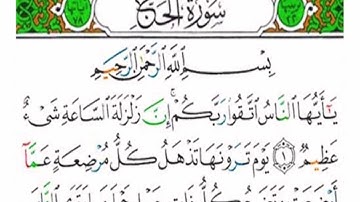 سُورَةُ الْحَجِّ
بِسْمِ اللَّهِ الرَّحْمَٰنِ الرَّحِيمِ
يَٰٓأَيُّهَا النَّاسُ اتَّقُوا رَبَّكُمْ ۚ إِنَّ زَلْزَلَةَ السَّاعَةِ شَىْءٌ
عَظِيمٌ ۝١ يَوْمَ تَرَوْنَهَا تَذْهَلُ كُلُّ مُرْضِعَةٍ عَمَّآ